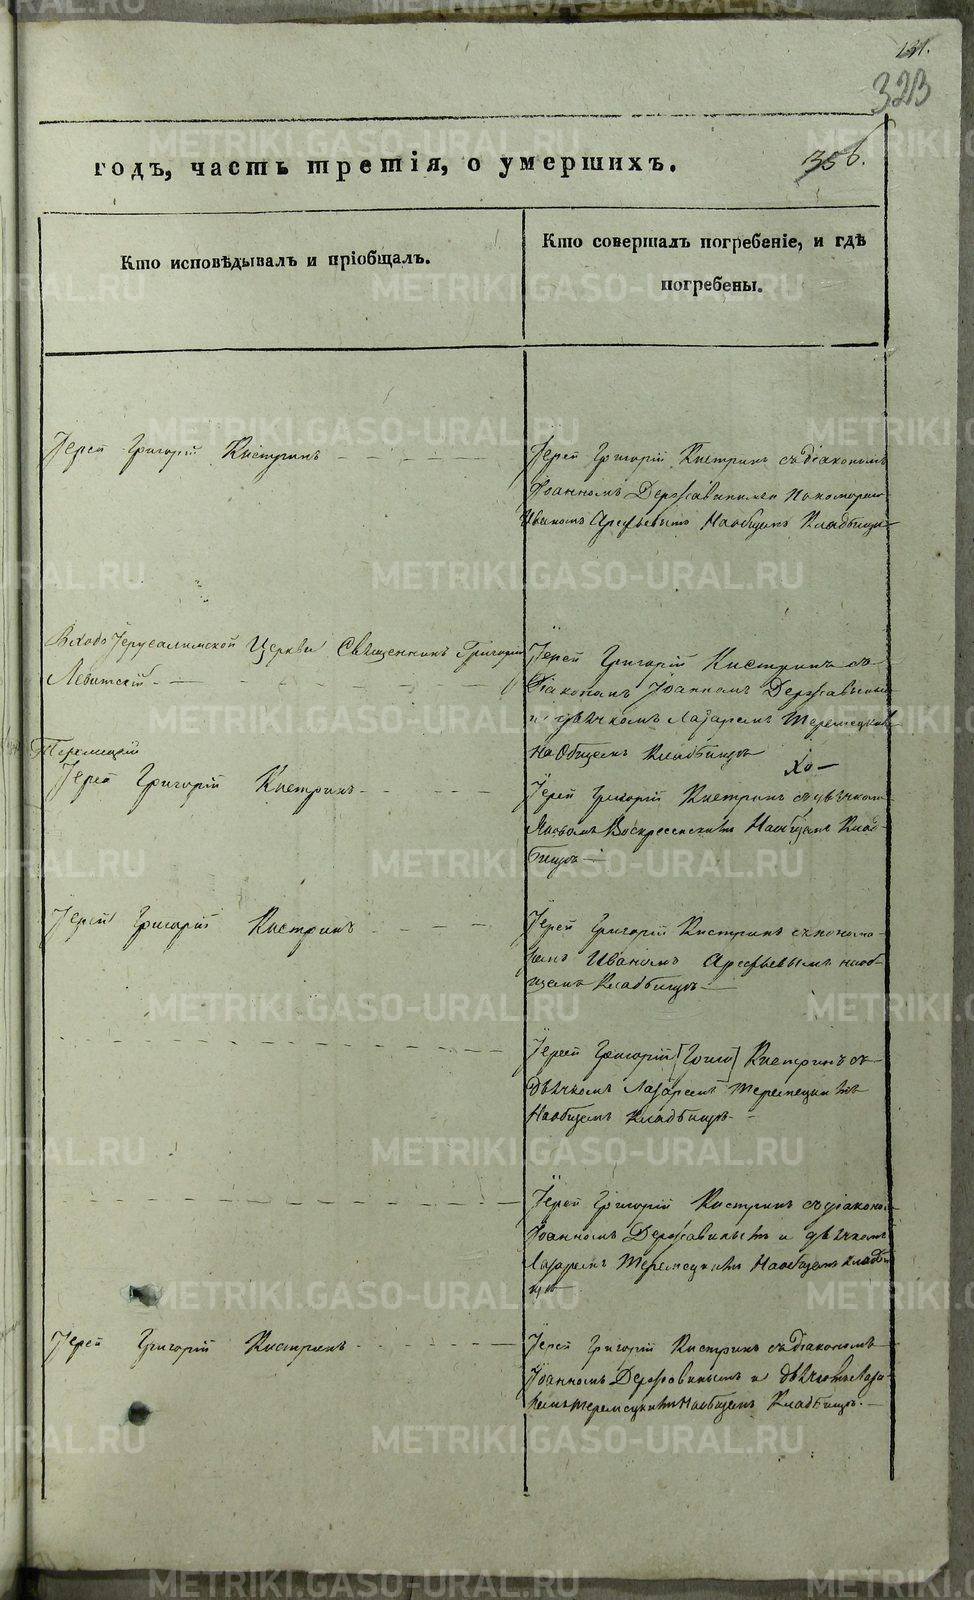 131.
323
годъ, часть третія, о умершихъ.
Кто исповѣдывалъ и пріобщалъ.
Кто совершалъ погребеніе, и гдѣ
погребены.
Іерей Григорій Кистринъ
Іерей Григорій Кистринъ съ діакономъ
Іоанномъ Державинымъ
Иваномъ Арефьевымъ На общемъ Кладбищѣ
Входо Іерусалимской Церкви Священникъ Григорій
Левитскій
Іерей Григорій Кистринъ съ
Діаконом Іоанномъ Державинымъ
и дьячкомъ Лазаремъ Теремецкимъ
На Общемъ Кладбищѣ
Теремецкій
Іерей Григорій Кистринъ
Іерей Григорій Кистринъ съ дьячкомъ
Воскресенскимъ На общемъ Клад-
бищѣ
Іерей Григорій Кистринъ
Іерей Григорій Кистринъ съ понома-
remъ Иваномъ Арефьевымъ на об-
щемъ Кладбищѣ
Іерей Григорій Кистринъ съ
дьячкомъ Лазаремъ Теремецкимъ
На общемъ Кладбищѣ
Іерей Григорій Кистринъ съ діакономъ
Іоанномъ Державинымъ и дьячкомъ
Лазаремъ Теремецкимъ На общемъ кладби
щѣ
Іерей Григорій Кистринъ
Іерей Григорій Кистринъ съ Діакономъ
Іоанномъ Державинымъ и дьячкомъ Лаза
ремъ Теремецкимъ На общемъ Кладбищѣ.
METRIKI.GASO-URAL.RU